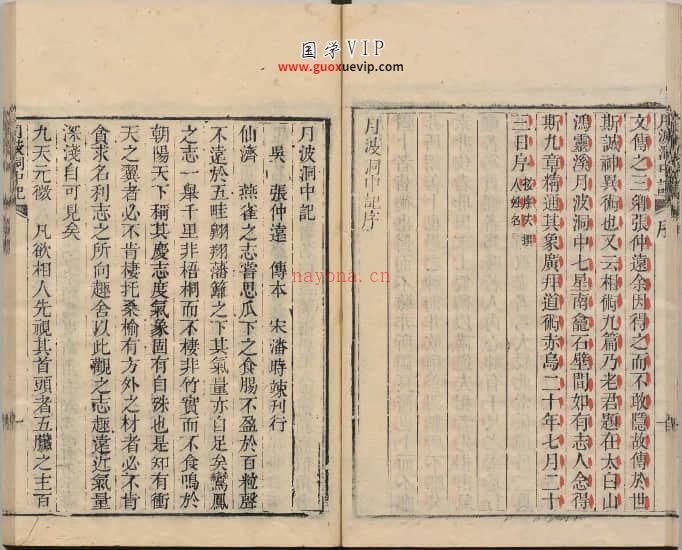 国学VIP
www.guoxuevip.com
nayona.cn
月波洞中記 序
文傳之三鄉張仲遠余因得之而不敢隱故傳於世
斯誠神異術也又云相術九篇乃老君題在太白山
鴻靈溪月波洞中七星南龕石壁間如有志人念得
斯九章精通其象廣拜道術赤烏二十年七月二十
三日序 按序失撰人姓名
月波洞中記序
月波洞中記
吳 張仲遠 傳本 宋潘時竦刊行
仙濟 燕雀之志嘗思瓜下之食腸不盈於百粒聲
不遠於五畦翱翔藩籬之下其氣量亦自足矣鸞鳳
之志一舉千里非梧桐而不棲非竹實而不食鳴於
朝陽天下稱其慶志度氣象固有自殊也是知有衝
天之翼者必不肯棲托桑榆有方外之材者必不肯
貪求名利志之所向趣舍以此觀之志趣遠近氣量
深淺自可見矣
九天元微 凡欲相人先視其首頭者五臟之主百
月波洞中記